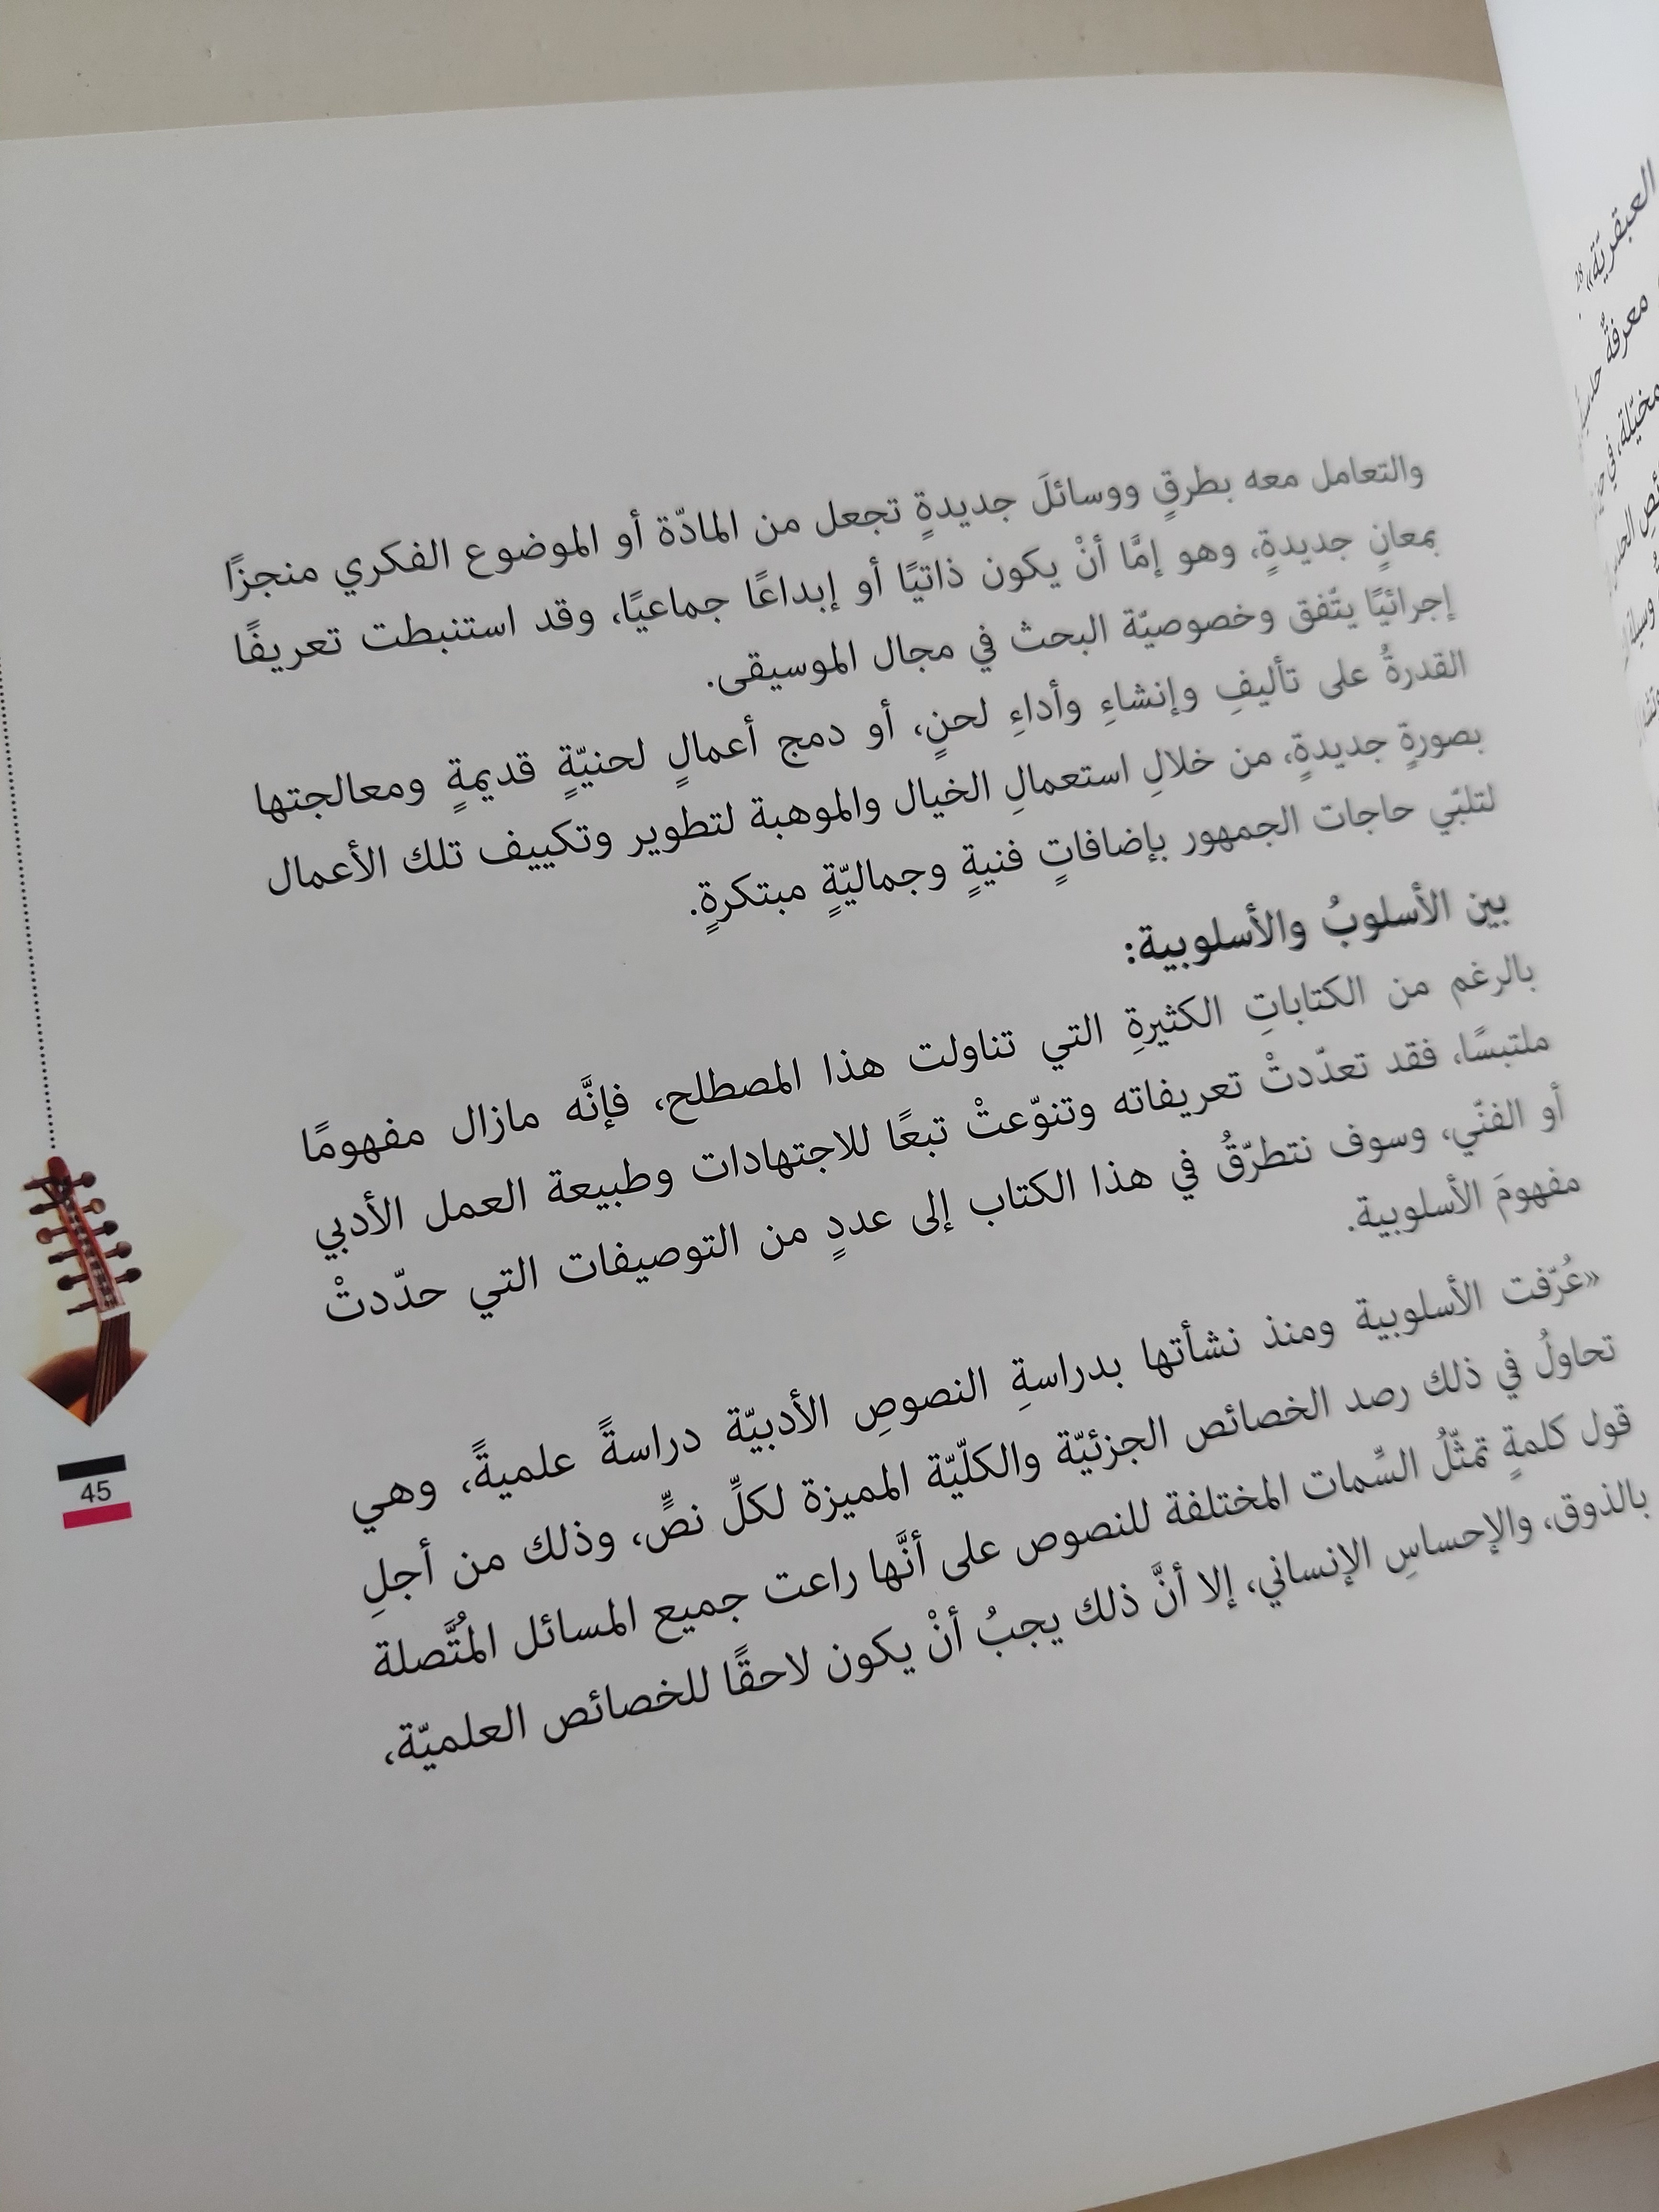 والتعامل معه بطرقٍ ووسائلَ جديدةٍ تجعل من المادّة أو الموضوع الفكري منجزًا
بمعانٍ جديدةٍ، وهو إمَّا أنْ يكون ذاتيًا أو إبداعًا جماعيًا، وقد استنبطت تعريفًا
إجرائيًا يتّفق وخصوصيّة البحث في مجال الموسيقى.
القدرةُ على تأليفِ وإنشاءِ وأداءِ لحنٍ، أو دمج أعمالٍ لحنيّةٍ قديمةٍ ومعالجتها
بصورةٍ جديدةٍ، من خلالِ استعمالِ الخيال والموهبة لتطوير وتكييف تلك الأعمال
لتلبّي حاجات الجمهور بإضافاتٍ فنيةٍ وجماليّةٍ مبتكرةٍ.
بين الأسلوبُ والأسلوبية:
بالرغم من الكتاباتِ الكثيرةِ التي تناولت هذا المصطلح، فإنَّه مازال مفهومًا
ملتبسًا، فقد تعدّدتْ تعريفاته وتنوّعتْ تبعًا للاجتهادات وطبيعة العمل الأدبي
أو الفنّي، وسوف نتطرّقُ في هذا الكتاب إلى عددٍ من التوصيفات التي حدّدتْ
مفهومَ الأسلوبية.
«عُرّفت الأسلوبية ومنذ نشأتها بدراسةِ النصوصِ الأدبيّة دراسةً علميةً، وهي
تحاولُ في ذلك رصد الخصائص الجزئيّة والكلّيّة المميزة لكلِّ نصٍّ، وذلك من أجلِ
قول كلمةٍ تمثّلُ السِّمات المختلفة للنصوص على أنَّها راعت جميع المسائل المُتَّصلة
بالذوق، والإحساسِ الإنساني، إلا أنَّ ذلك يجبُ أنْ يكون لاحقًا للخصائص العلميّة،
45
العبقريّة» 28.
معرفةٌ
مخيّلة، في